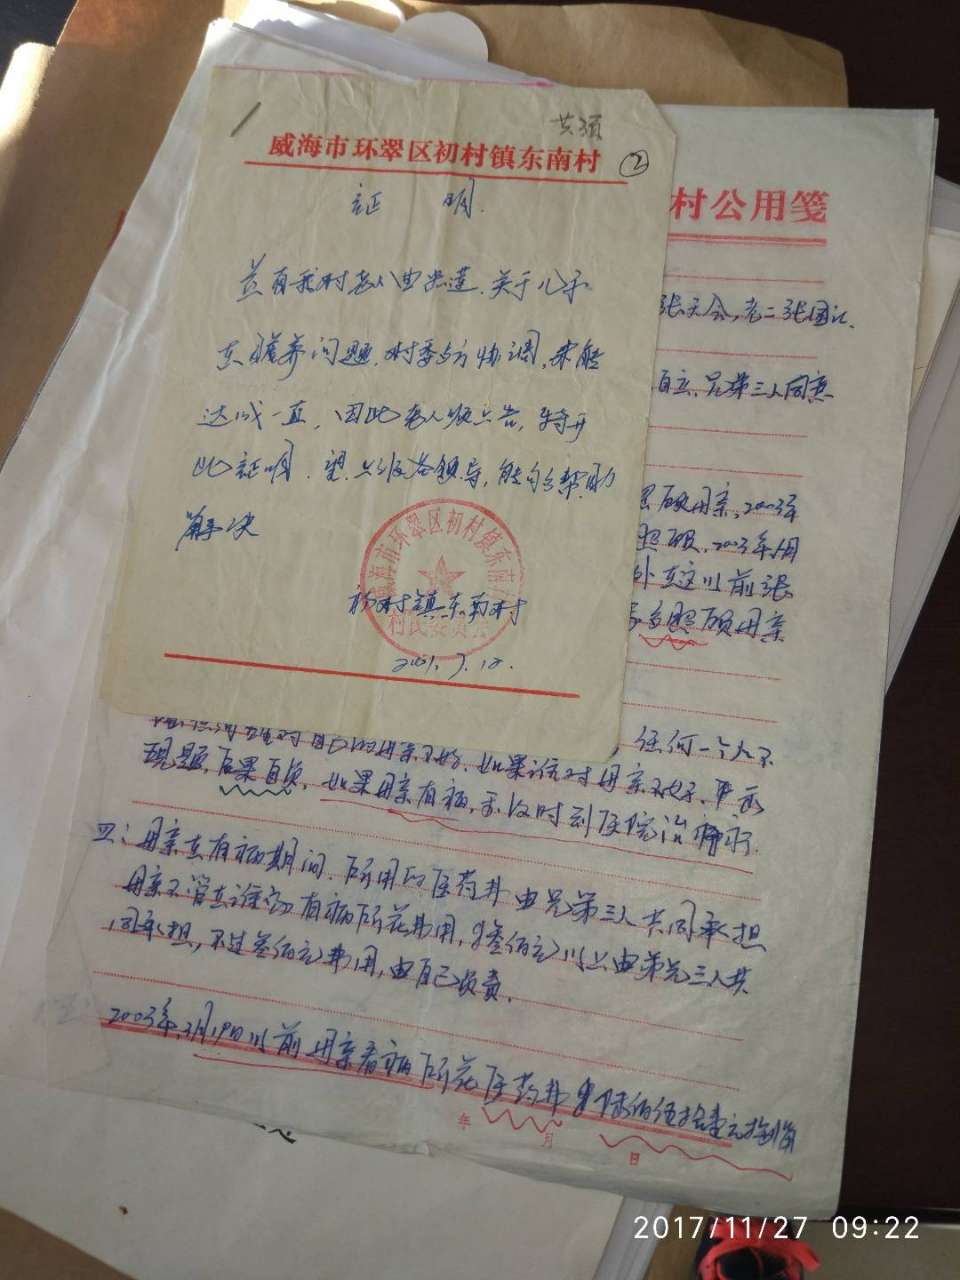 共 2 页
②
威海市环翠区初村镇东南村
证 明
兹有我村老人曲 莲,关于儿子
在赡养问题,村委多方协调,未能
达成一直,因此老人须上告,特开
此证明,望上级各领导,能夠多帮助
解决
威海市环翠区初村镇东南
村民委员会
初村镇东南村
村公用笺
张天会,老二张国
自立,兄弟三人同意
照顾母亲,2003年
照顾,2003年 月
外在这以前张
多照顾母亲
任何一个人不
对自己的母亲不好,如果谁对母亲不好,
现题,后果自负,如果母亲有病,不及时到医院治病
四:母亲在有病期间,所用的医药费由兄弟三人共同承担
母亲不管在谁家有病所花费用,叁佰元以上由弟兄三人共
同承担,不过叁佰元费用,由自己负责.
2003年,3月19日以前母亲看病所花医药费 陆佰伍拾 元
年 月 日
2017/11/27 09:22